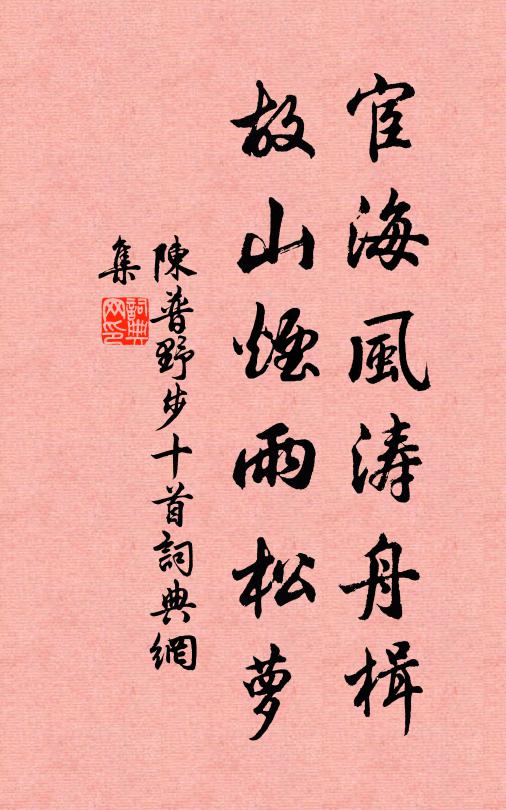 宦海風涛舟楫
故山煙雨松萝
陳普野步十首詞典網
集
詞典
网印